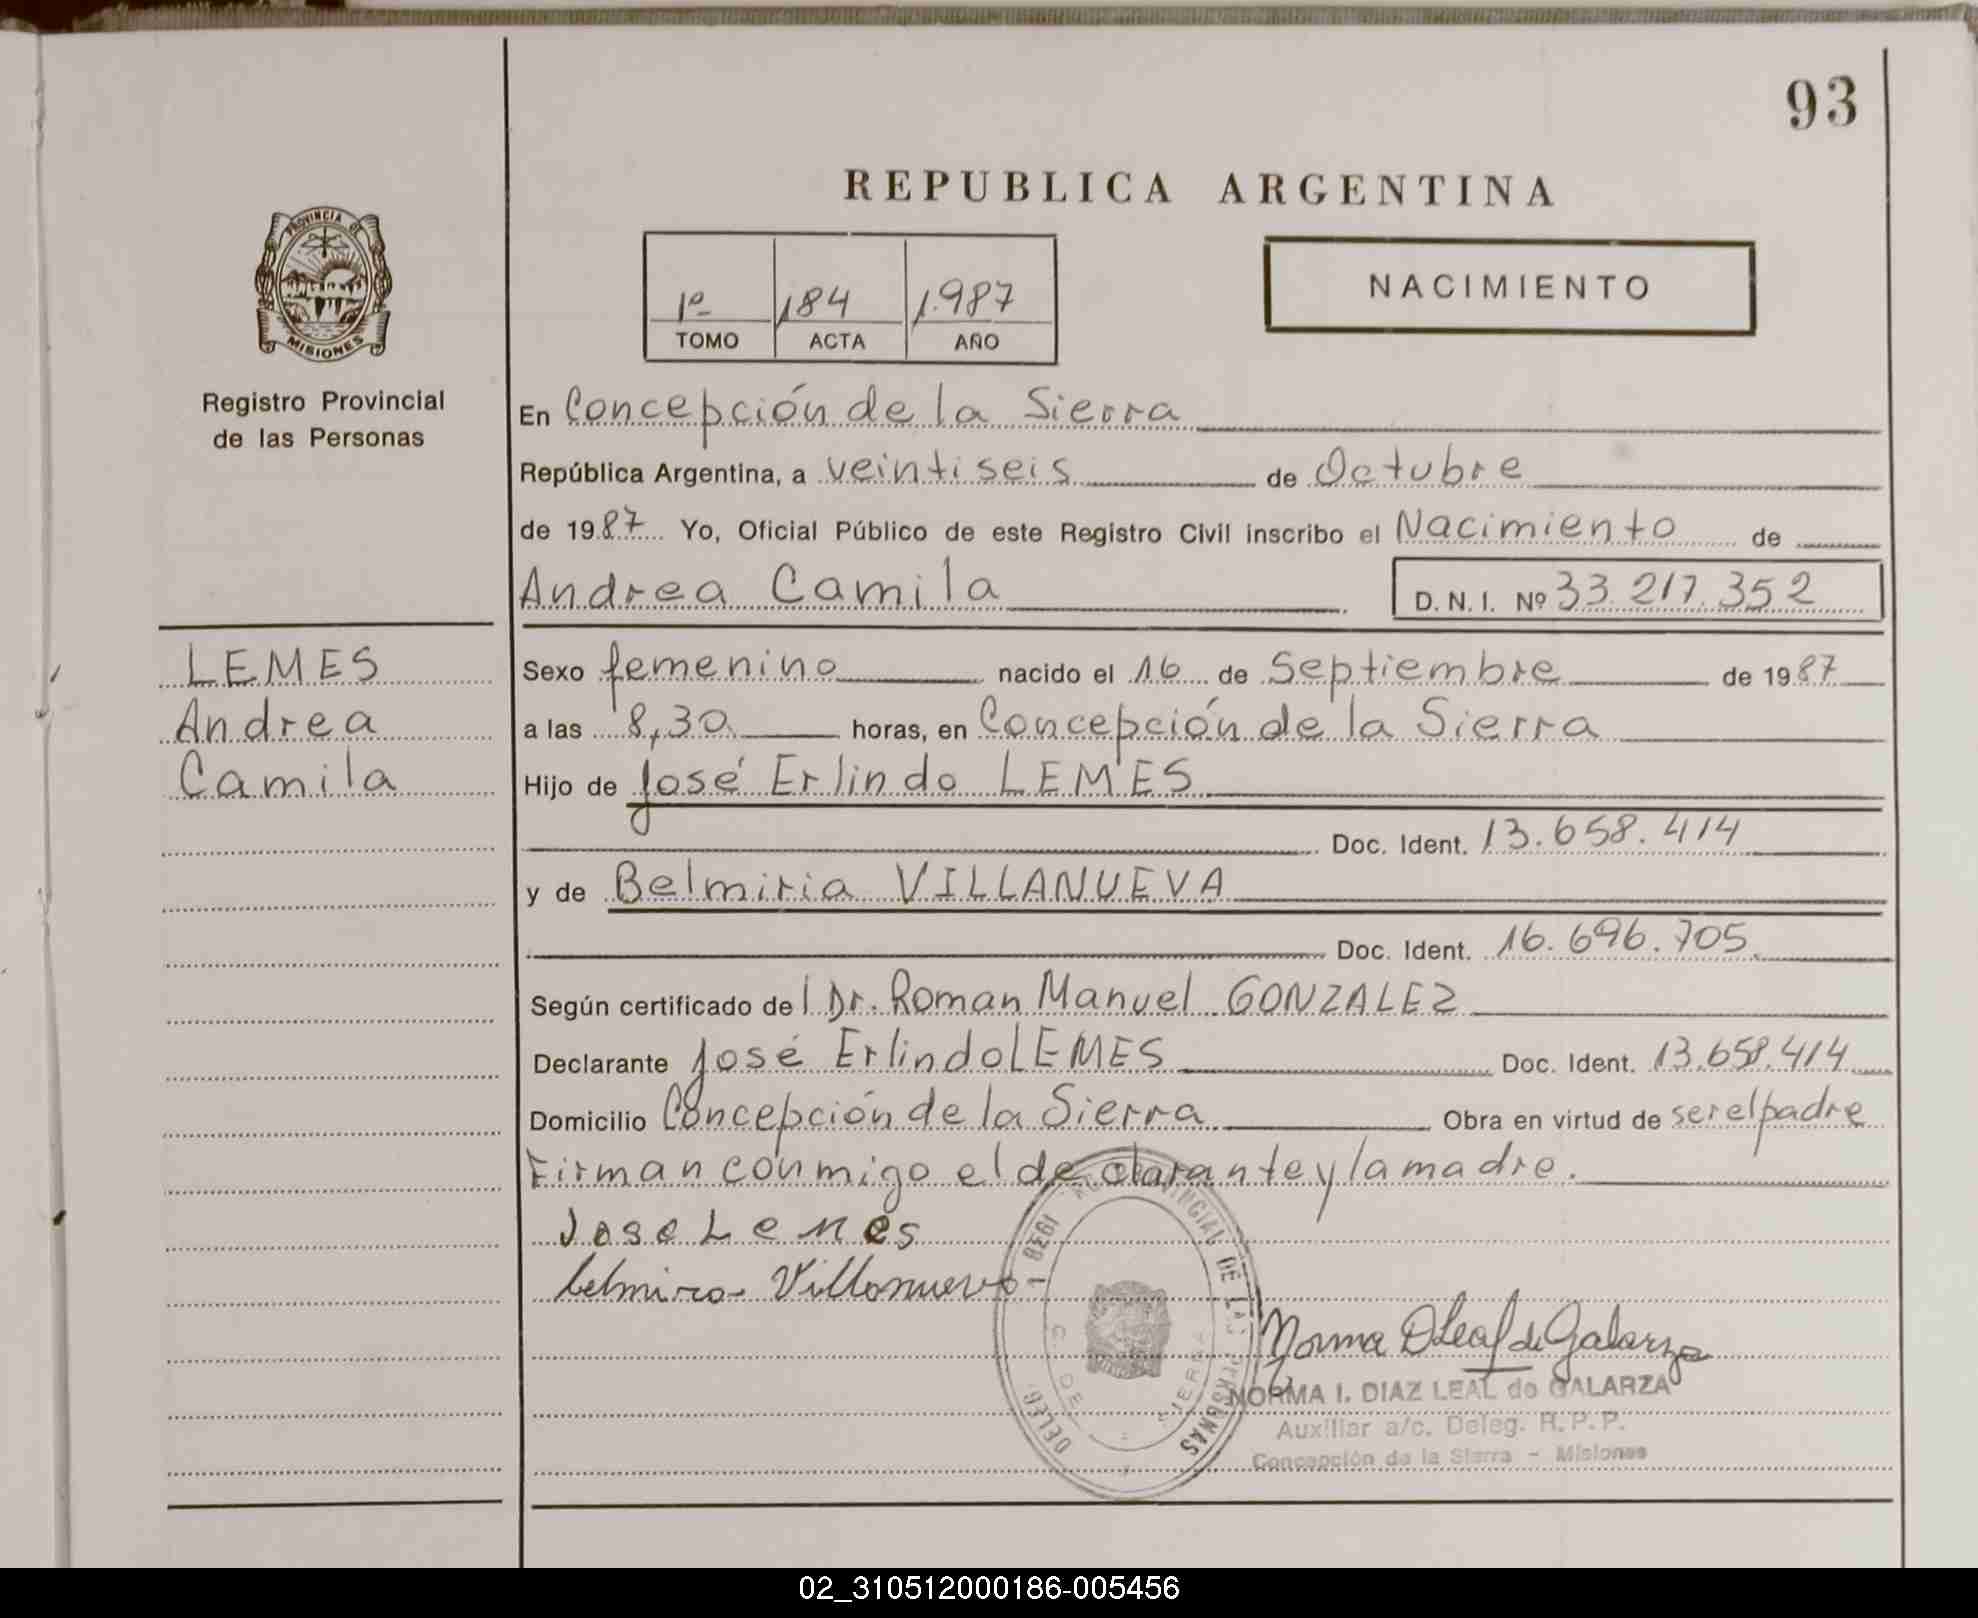 93
REPUBLICA ARGENTINA
PROVINCIA DE
MISIONES
Registro Provincial
de las Personas
1º 184 1.987
TOMO ACTA AÑO
NACIMIENTO
En Concepción de la Sierra
República Argentina, a veintiseis de Octubre
de 1987 Yo, Oficial Público de este Registro Civil inscribo el Nacimiento de
Andrea Camila D.N.I. Nº 33.217.352
LEMES
Andrea
Camila
Sexo femenino nacido el 16 de Septiembre de 1987
a las 8,30 horas, en Concepción de la Sierra
Hijo de José Erlindo LEMES
Doc. Ident. 13.658.414
y de Belmiria VILLANUEVA
Doc. Ident. 16.696.705
Según certificado del Dr. Roman Manuel GONZALEZ
Declarante José Erlindo LEMES Doc. Ident. 13.658.414
Domicilio Concepción de la Sierra Obra en virtud de ser el padre
Firman conmigo el declarante y la madre.
Jose Lemes
belmira Villanueva
Norma DLeal de Galarza
NORMA I. DIAZ LEAL de GALARZA
Auxiliar a/c. Deleg. R.P.P.
Concepción de la Sierra - Misiones
02_310512000186-005456